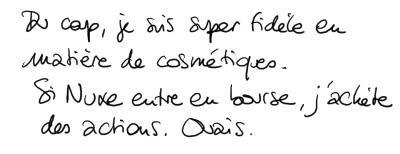 Du coup, je suis super fidèle en
matière de cosmétiques.
Si Nuxe entre en bourse, j'achète
des actions. Ouais.